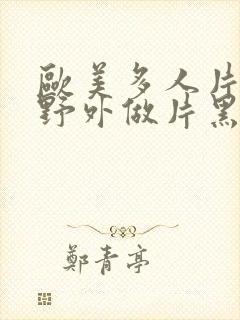 歐美多人片
野外做片黑
鄭青亭